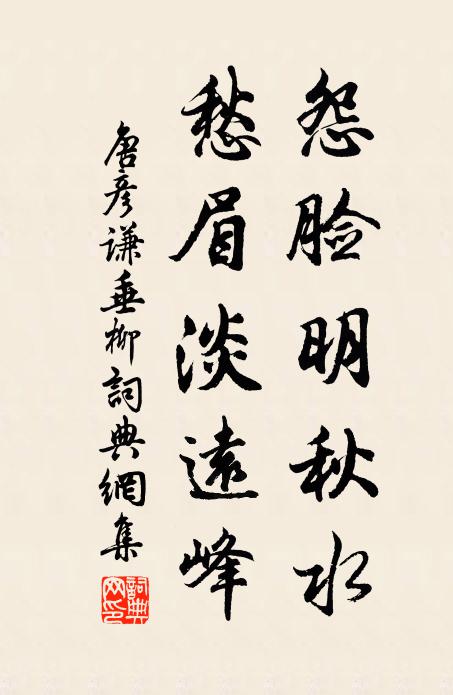 怨脸明秋水
愁眉淡遠峰
唐彦谦垂柳詞典網集
詞典網印